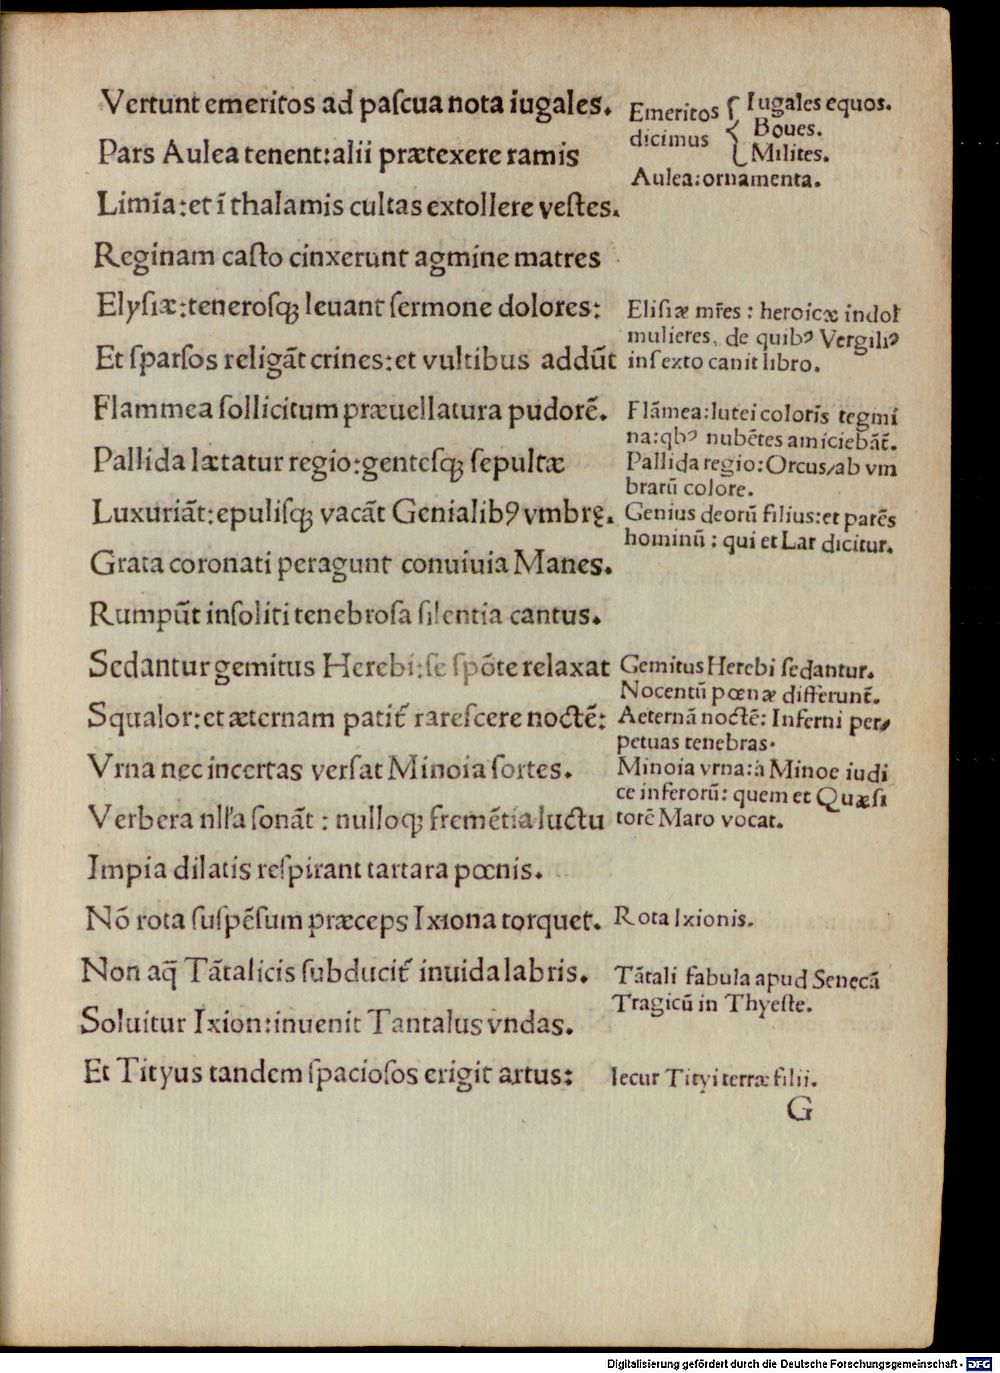 Vertunt emeritos ad paſcua nota iugales.
Pars Aulea tenent:alii prætexere ramis
Limīa:et ī thalamis cultas extollere veſtes.
Reginam caſto cinxerunt agmine matres
Elyſiæ:teneroſqꝫ leuant ſermone dolores:
Et ſparſos religāt crines:et vultibus addūt
Flammea ſollicitum præuellatura pudorē.
Pallida lætatur regio:genteſqꝫ ſepultæ
Luxuriāt:epuliſqꝫ vacāt Genialibꝰ vmbrę.
Grata coronati peragunt conuiuia Manes.
Rumpūt inſoliti tenebroſa ſilentia cantus.
Sedantur gemitus Herebi:ſe ſpōte relaxat
Squalor:et æternam patit᷑ rareſcere noctē:
Vrna nec incertas verſat Minoia ſortes.
Verbera nll'a ſonāt : nulloqꝫ fremētia luctu
Impia dilatis reſpirant tartara pœnis.
Nō rota ſuſpēſum præceps Ixiona torquet.
Non aq̄ Tātalicis ſubducit᷑ inuida labris.
Soluitur Ixion:inuenit Tantalus vndas.
Et Tityus tandem ſpacioſos erigit artus:
Emeritos dicimus { Iugales equos.
Boues.
Milites.
Aulea:ornamenta.
Eliſiæ mr̄es : heroicæ indoł
mulieres, de quibꝰ Vergiliꝰ
inſexto canit libro.
Flāmea:lutei coloris tegmi
na:qbꝰ nubētes amiciebāt᷑.
Pallida regio:Orcus/ab vm
brarū colore.
Genius deorū filius:et parēs
hominū : qui et Lar dicitur.
Gemitus Herebi ſedantur.
Nocentū pœnæ differunt᷑.
Aeternā noctē: Inferni per/
petuas tenebras.
Minoia vrna:à Minoe iudi
ce inferorū: quem et Quæſi
torē Maro vocat.
Rota Ixionis.
Tātali fabula apud Senecā
Tragicū in Thyeſte.
Iecur Tityi terræ filii.
G
Digitalisierung gefördert durch die Deutsche Forschungsgemeinschaft - DFG